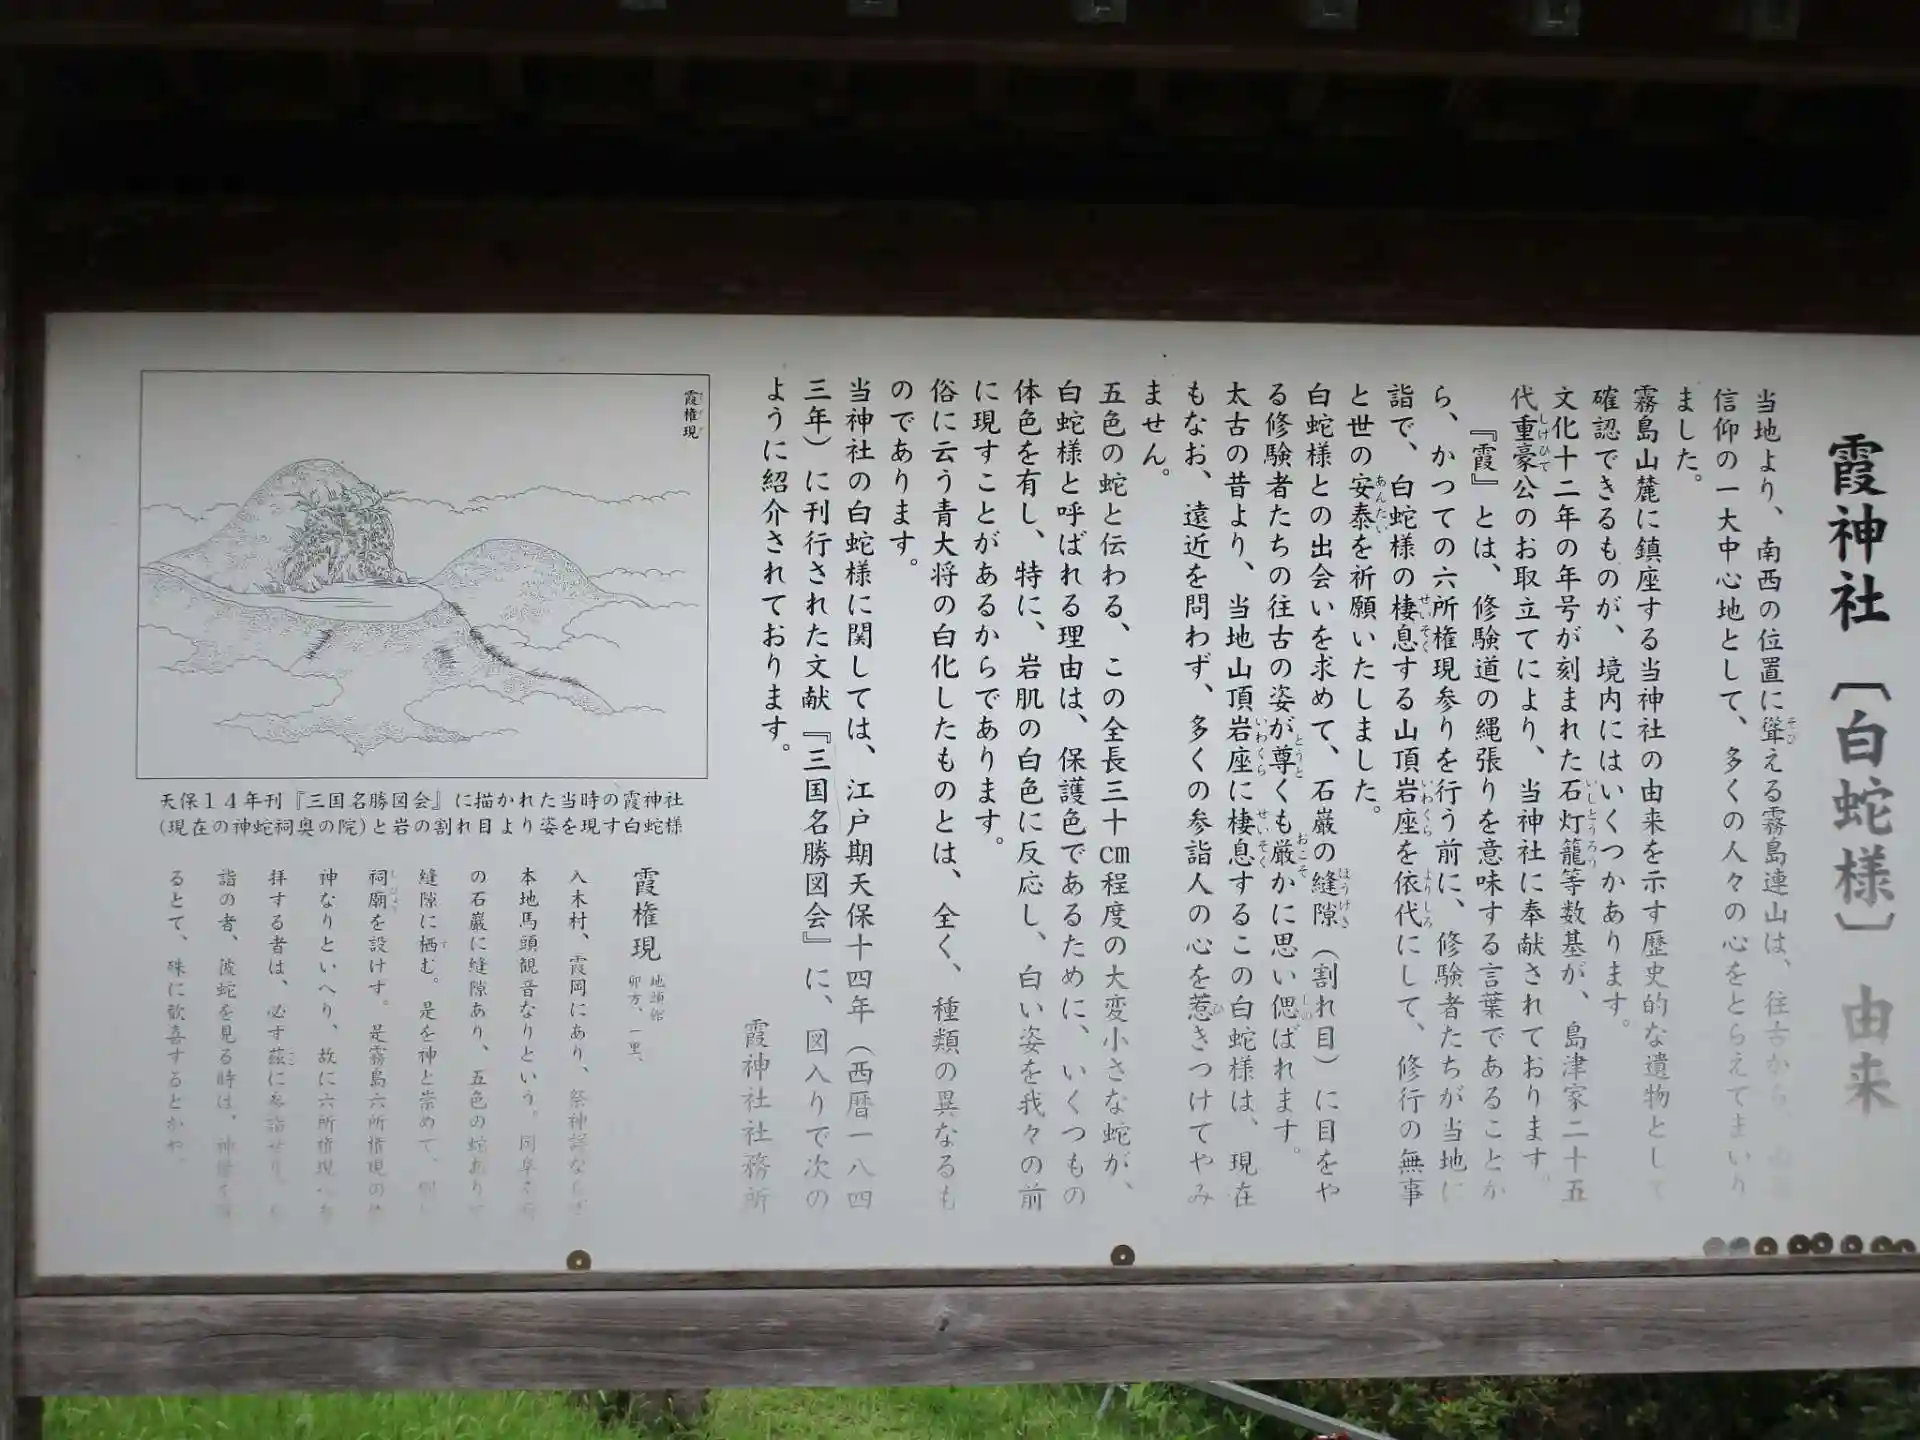 霞神社〔白蛇様〕由来
当地より、南西の位置に聳える霧島連山は、往古から
信仰の一大中心地として、多くの人々の心をとらえてまいり
ました。
霧島山麓に鎮座する当神社の由来を示す歴史的な遺物として
確認できるものが、境内にはいくつかあります。
文化十二年の年号が刻まれた石灯籠等数基が、島津家二十五
代重豪公のお取立てにより、当神社に奉献されております。
『霞』とは、修験道の縄張りを意味する言葉であることか
ら、かつての六所権現参りを行う前に、修験者たちが当地に
詣で、白蛇様の棲息する山頂岩座を依代にして、修行の無事
と世の安泰を祈願いたしました。
白蛇様との出会いを求めて、石巌の縫隙（割れ目）に目をや
る修験者たちの往古の姿が尊くも厳かに思い偲ばれます。
太古の昔より、当地山頂岩座に棲息するこの白蛇様は、現在
もなお、遠近を問わず、多くの参詣人の心を惹きつけてやみ
ません。
五色の蛇と伝わる、この全長三十cm程度の大変小さな蛇が、
白蛇様と呼ばれる理由は、保護色であるために、いくつもの
体色を有し、特に、岩肌の白色に反応し、白い姿を我々の前
に現すことがあるからであります。
俗に云う青大将の白化したものとは、全く、種類の異なるも
のであります。
当神社の白蛇様に関しては、江戸期天保十四年（西暦一八四
三年）に刊行された文献『三国名勝図会』に、図入りで次の
ように紹介されております。
霞神社社務所
霞権現
天保１４年刊『三国名勝図会』に描かれた当時の霞神社
(現在の神蛇祠奥の院)と岩の割れ目より姿を現す白蛇様
霞権現 地頭館
卯方、一里、
入木村、霞岡にあり、祭神詳ならず
本地馬頭観音なりという。同阜
の石巌に縫隙あり、五色の蛇あり
縫隙に栖む。是を神と崇めて、
祠廟を設けず。是霧島六所権現の
神なりといへり、故に六所権現へ
拝する者は、必す茲に参詣せり、
詣の者、彼蛇を見る時は、神
るとて、殊に歓喜するとかや。